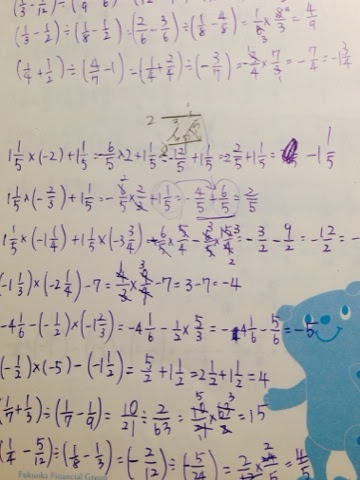 (1/3 - 1/2) ÷ (1/8 - 1/2) = (2/6 - 3/6) ÷ (1/8 - 4/8) = 1/6 × 8/3 = 4/9
(1/4 + 1/2) ÷ (4/7 - 1) = (1/4 + 2/4) ÷ (-3/7) = -3/4 × 7/3 = -7/4 = -1 3/4
1 1/5 × (-2) + 1 1/5 = -6/5 × 2 + 1 1/5 = -12/5 + 1 1/5 = -2 2/5 + 1 1/5 = -1 1/5
1 1/5 × (-2/3) + 1 1/5 = -6/5 × 2/3 + 1 1/5 = -4/5 + 6/5 = 2/5
1 1/5 × (-1 1/4) + 1 1/5 × (-3 3/4) = -6/5 × 5/4 - 6/5 × 15/4 = -3/2 - 9/2 = -12/2 = -
-1 1/3) × (-2 1/4) - 7 = 4/3 × 9/4 - 7 = 3 - 7 = -4
-4 1/6 - (-1/2) × (-1 2/3) = -4 1/6 - 1/2 × 5/3 = -4 1/6 - 5/6 = -5
(-1/2) × (-5) - (-1 1/2) = 5/2 + 1 1/2 = 2 1/2 + 1 1/2 = 4
(1/7 + 1/3) ÷ (1/7 - 1/9) = 10/21 ÷ 2/63 = 10/21 × 63/2 = 15
(1/4 - 5/12) ÷ (1/8 - 1/3) = (-2/12) ÷ (-5/24) = 2/12 × 24/5 = 4/5
Fukuoka Financial Group